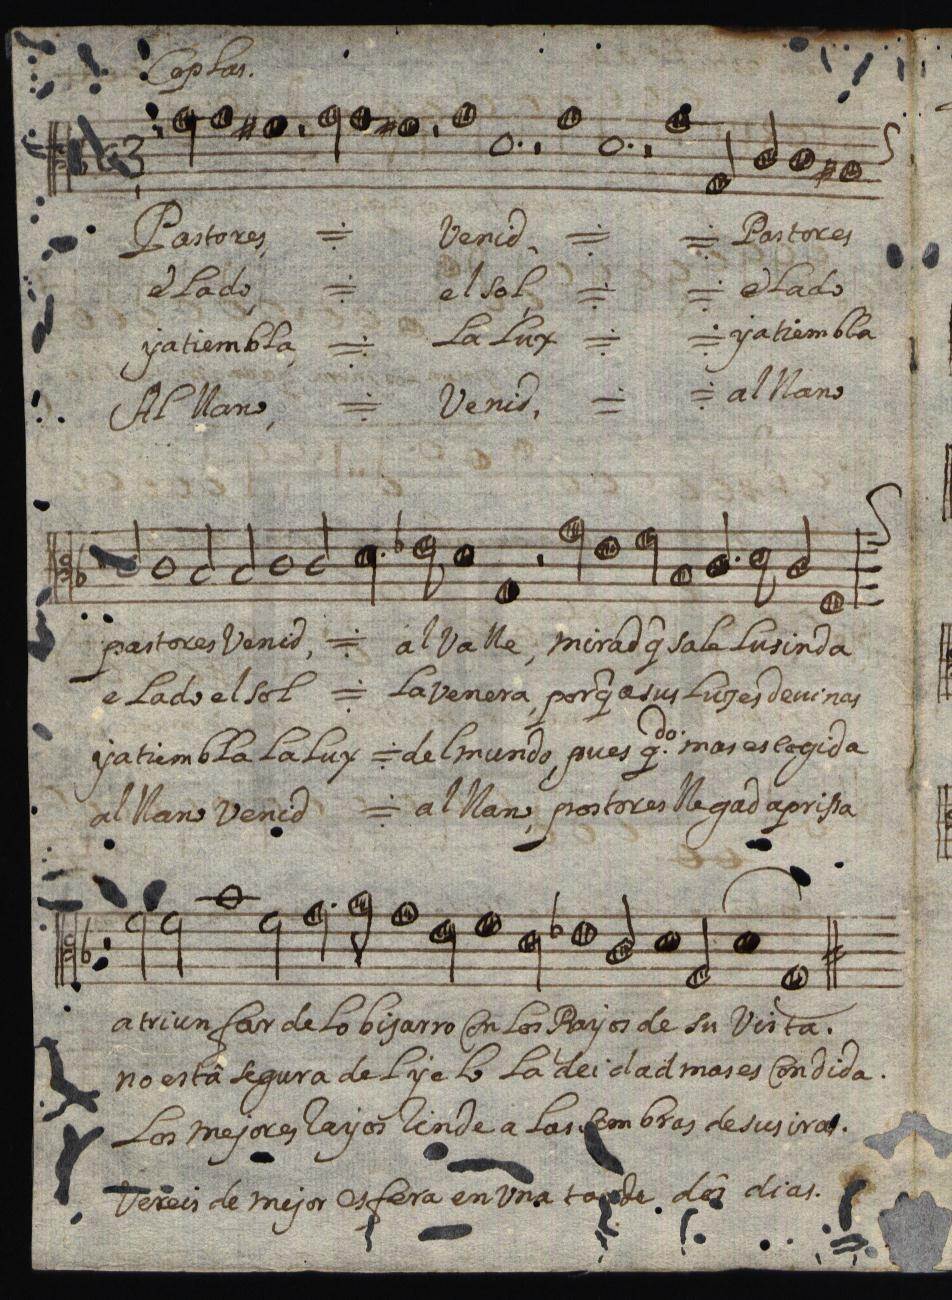 Coplas.
Pastores, Venid, Pastores
elado, el sol, elado
yatiembla, La Lux yatiembla
Al llano, Venid, al llano
pastores Venid, al Valle, mirad q̃ sale Lusinda
elado el sol La Venera, porq̃ a sus Luzes deuinas
yatiembla La Lux del mundo, pues q.do mas escogida
al llano Venid al llano, pastores llegad aprissa
atriunfar de Lo bisarro Con Los Rayos de su Vista.
no está segura del yelo La deidad mas escondida.
Los mejores Rayos Rinde a las sombras de sus iras.
Vereis de mejor esfera en Vna tarde dos dias.